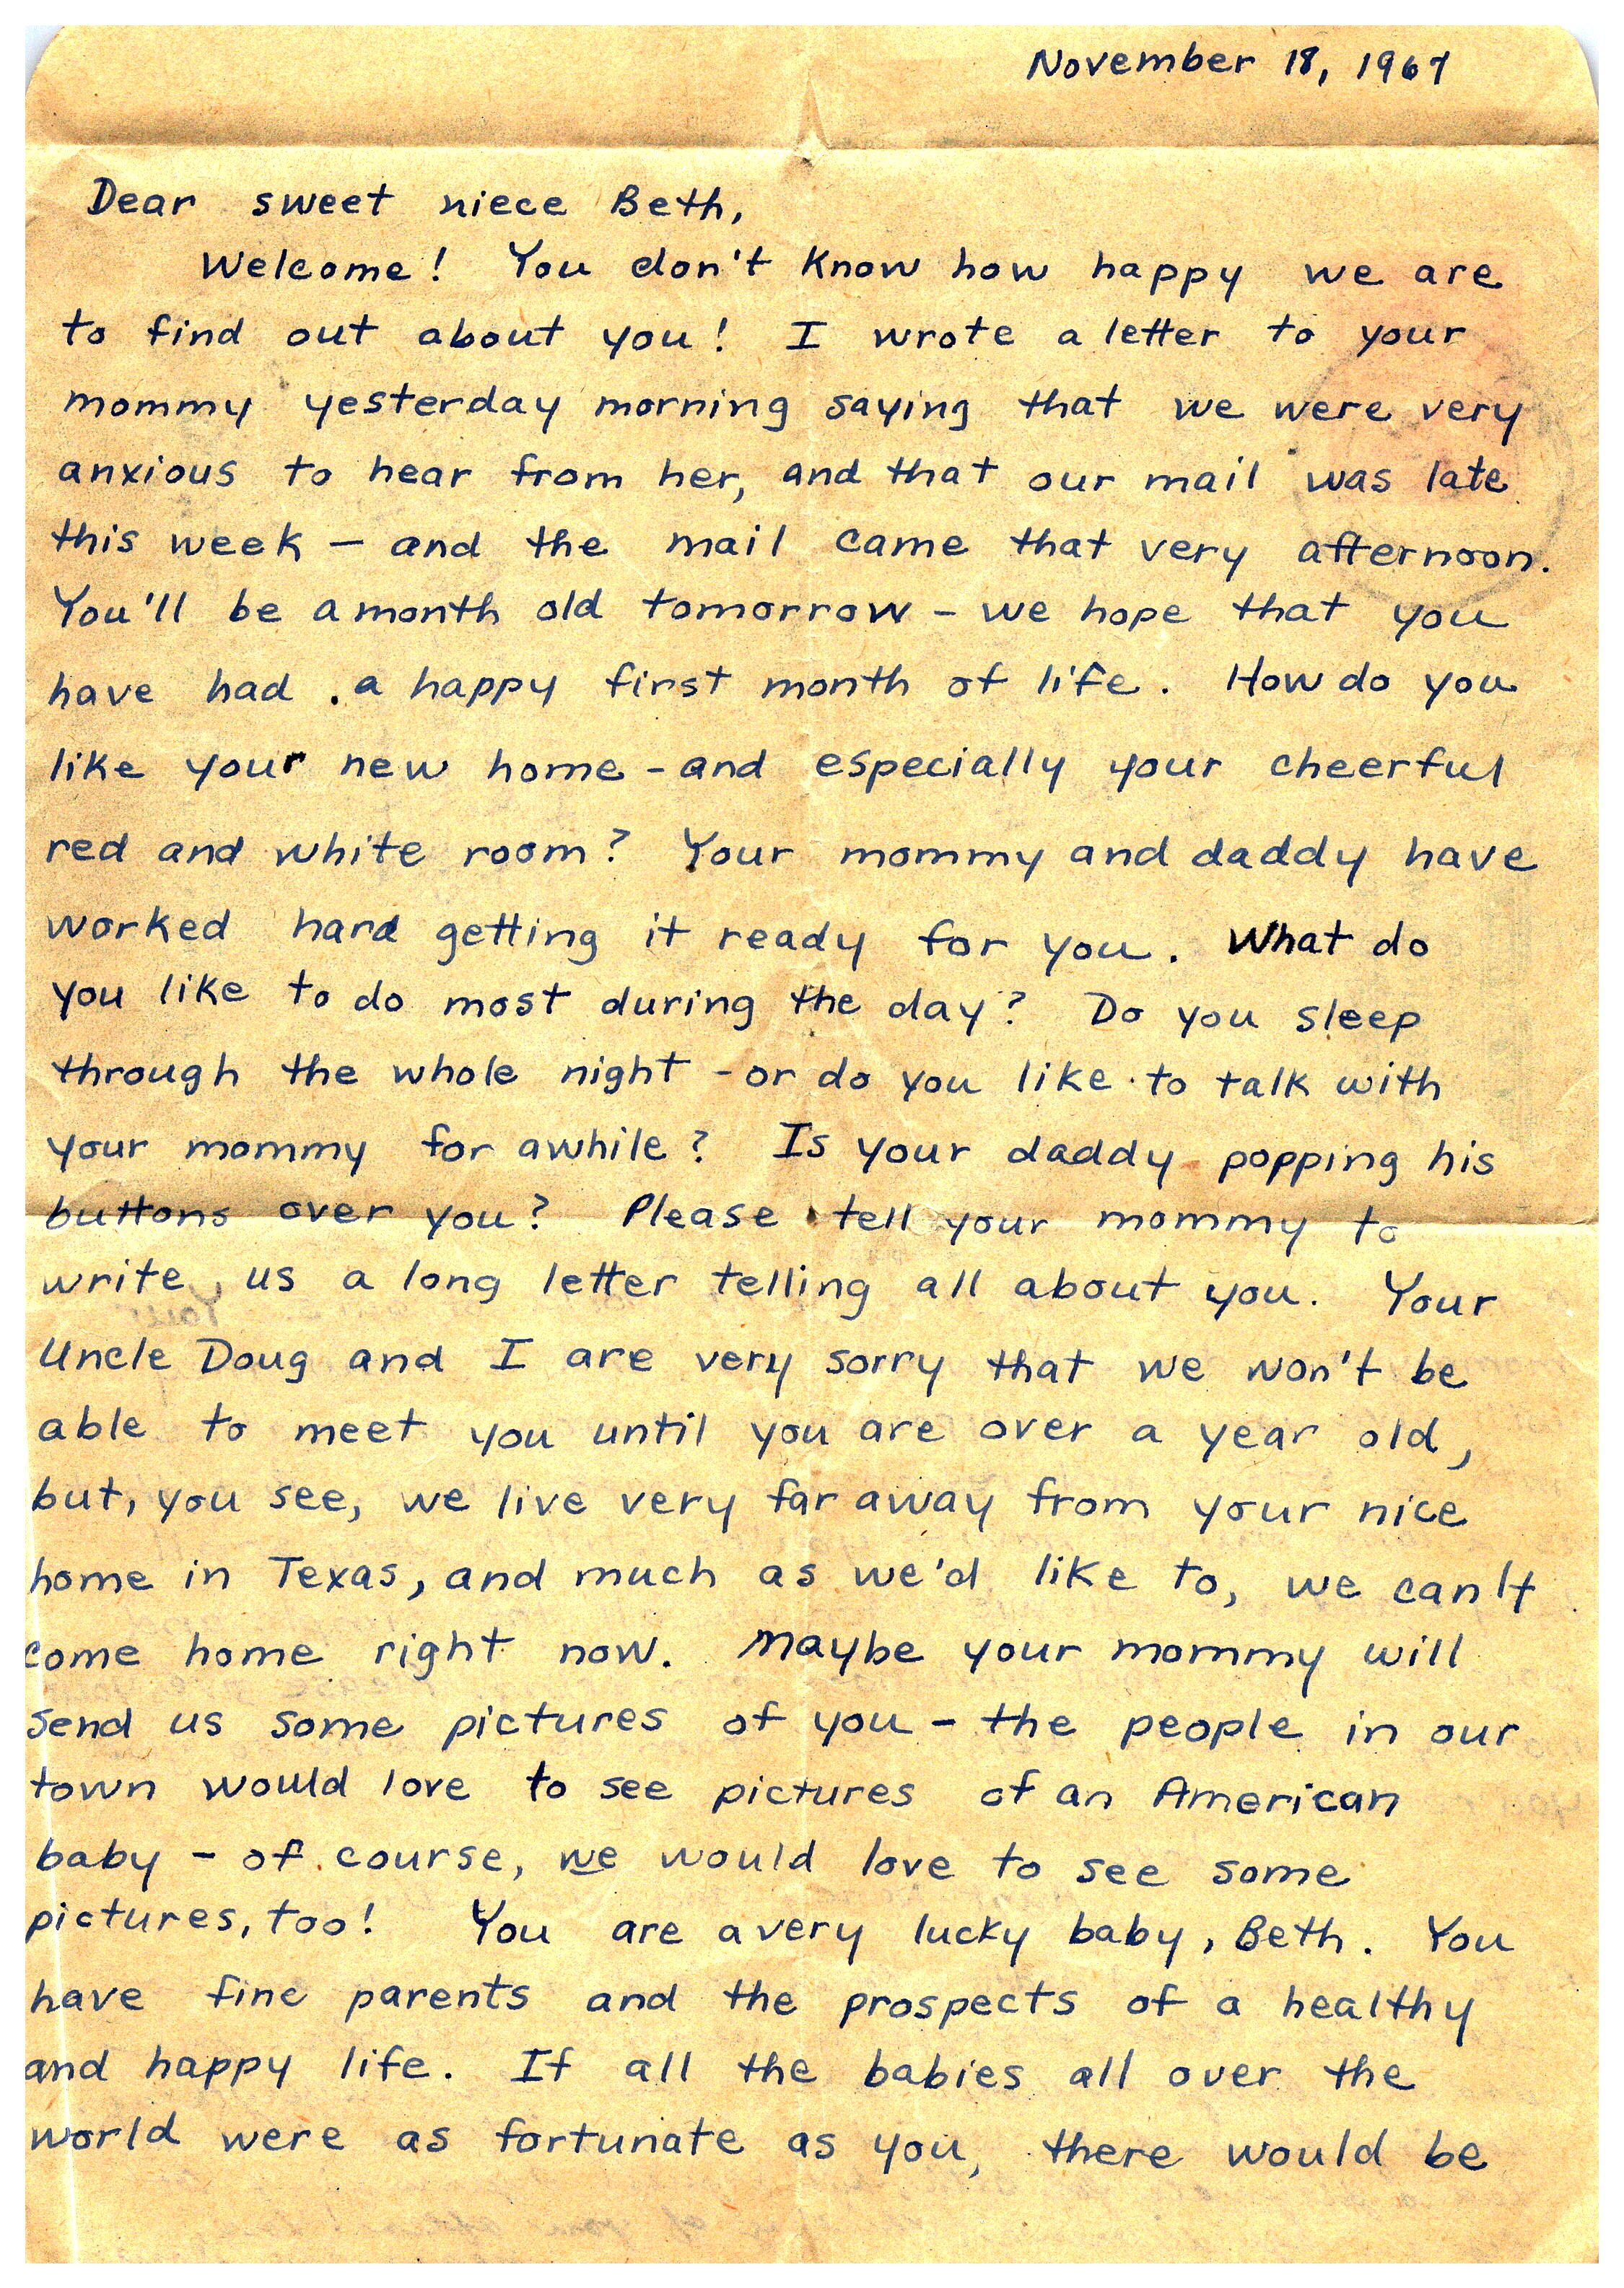 November 18, 1967
Dear sweet niece Beth,
Welcome! You don't know how happy we are
to find out about you! I wrote a letter to your
mommy yesterday morning saying that we were very
anxious to hear from her, and that our mail was late
this week – and the mail came that very afternoon.
You'll be a month old tomorrow – we hope that you
have had a happy first month of life. How do you
like your new home – and especially your cheerful
red and white room? Your mommy and daddy have
worked hard getting it ready for you. What do
you like to do most during the day? Do you sleep
through the whole night – or do you like to talk with
your mommy for awhile? Is your daddy popping his
buttons over you? Please tell your mommy to
write us a long letter telling all about you. Your
Uncle Doug and I are very sorry that we won't be
able to meet you until you are over a year old,
but, you see, we live very far away from your nice
home in Texas, and much as we'd like to, we can't
come home right now. Maybe your mommy will
send us some pictures of you – the people in our
town would love to see pictures of an American
baby – of course, we would love to see some
pictures, too! You are a very lucky baby, Beth. You
have fine parents and the prospects of a healthy
and happy life. If all the babies all over the
world were as fortunate as you, there would be